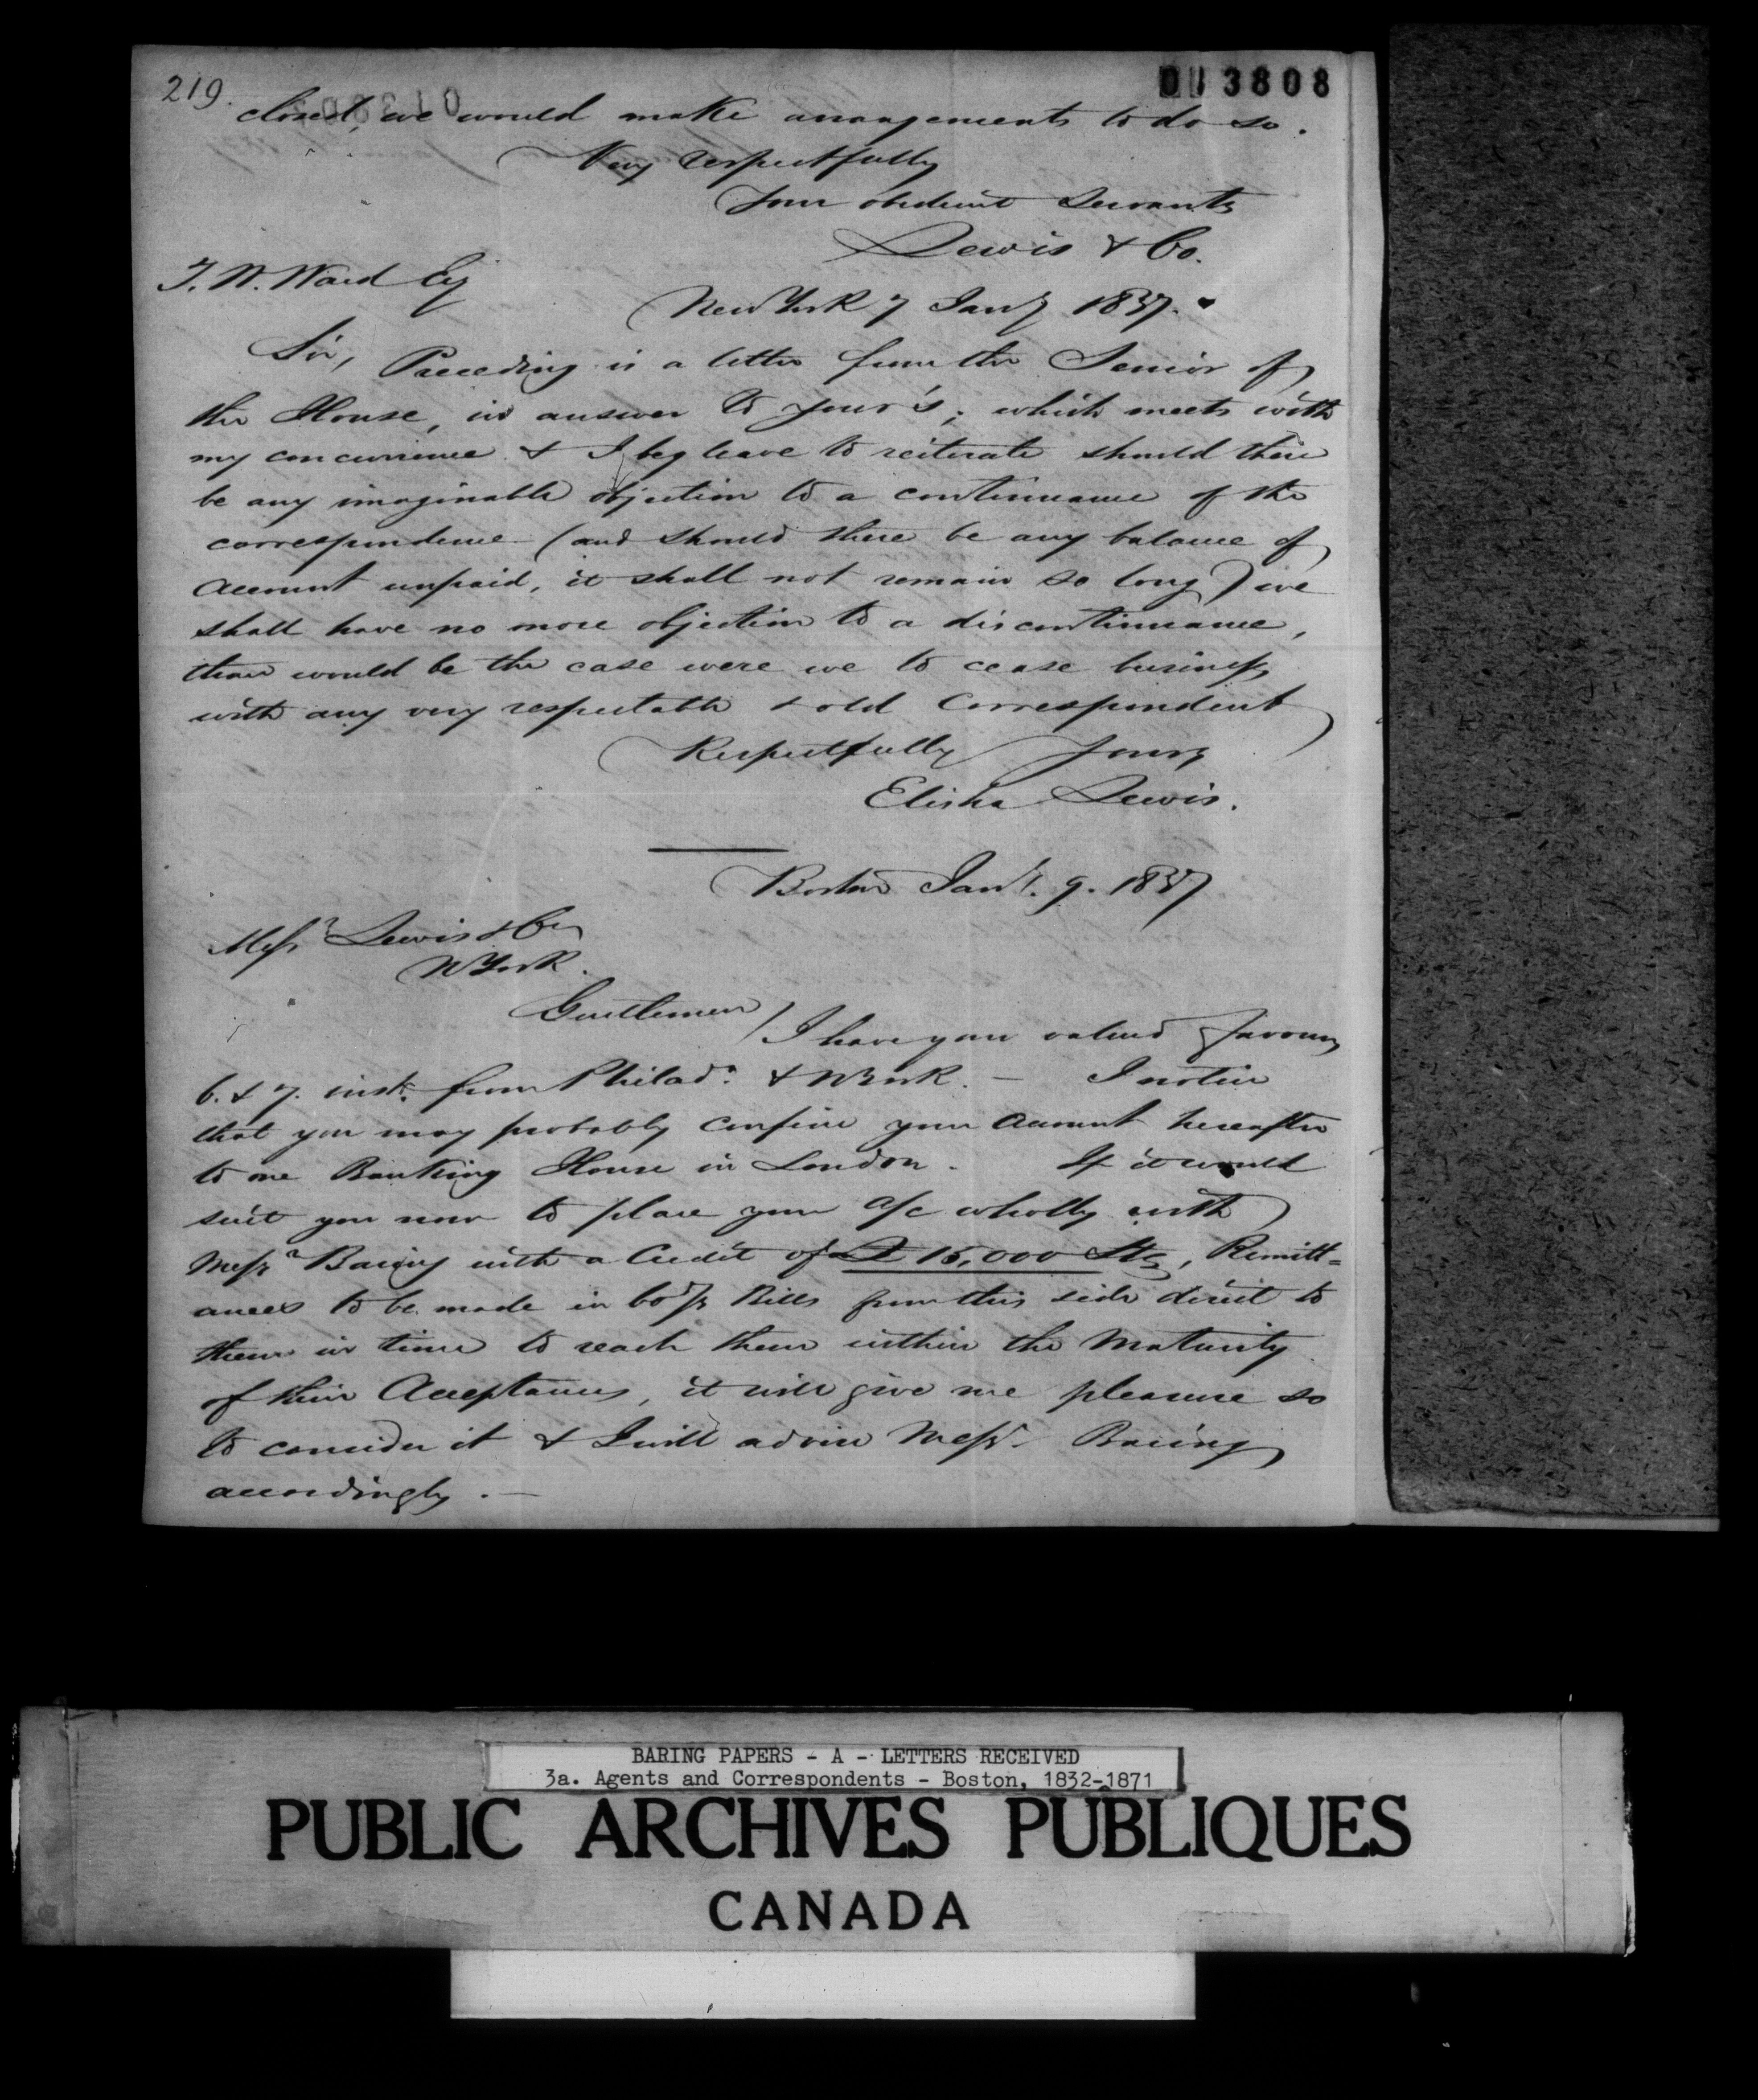 219.
013808
closed, we would make arrangements to do so.
Very respectfully
Your obedient Servants
Lewis & Co.
T. W. Ward Esq
New York 7 Jany 1837.
Sir, Preceding is a letter from the Senior of
the House, in answer to your's; which meets with
my concurrence & I beg leave to reiterate should there
be any imaginable objection to a continuance of the
correspondence (and should there be any balance of
account unpaid, it shall not remain so long) we
shall have no more objection to a discontinuance,
than would be the case were we to cease business
with any very respectable & old Correspondent
Respectfully Yours
Elisha Lewis.
Boston Jany. 9. 1837
Messrs Lewis & Co
N York.
Gentlemen / I have your valued favours
6. & 7. inst. from Philada. & N York. — I notice
that you may probably confine your account hereafter
to one Banking House in London. If it would
suit you now to place your a/c wholly with
Messrs Barings with a Credit of £ 15,000 Stg, Remitt=
ances to be made in 60 d/s Bills from this side direct to
them in time to reach them within the maturity
of their Acceptances, it will give me pleasure so
to consider it & I will advise Messrs. Barings
accordingly. —
BARING PAPERS - A - LETTERS RECEIVED
3a. Agents and Correspondents - Boston, 1832-1871
PUBLIC ARCHIVES PUBLIQUES
CANADA